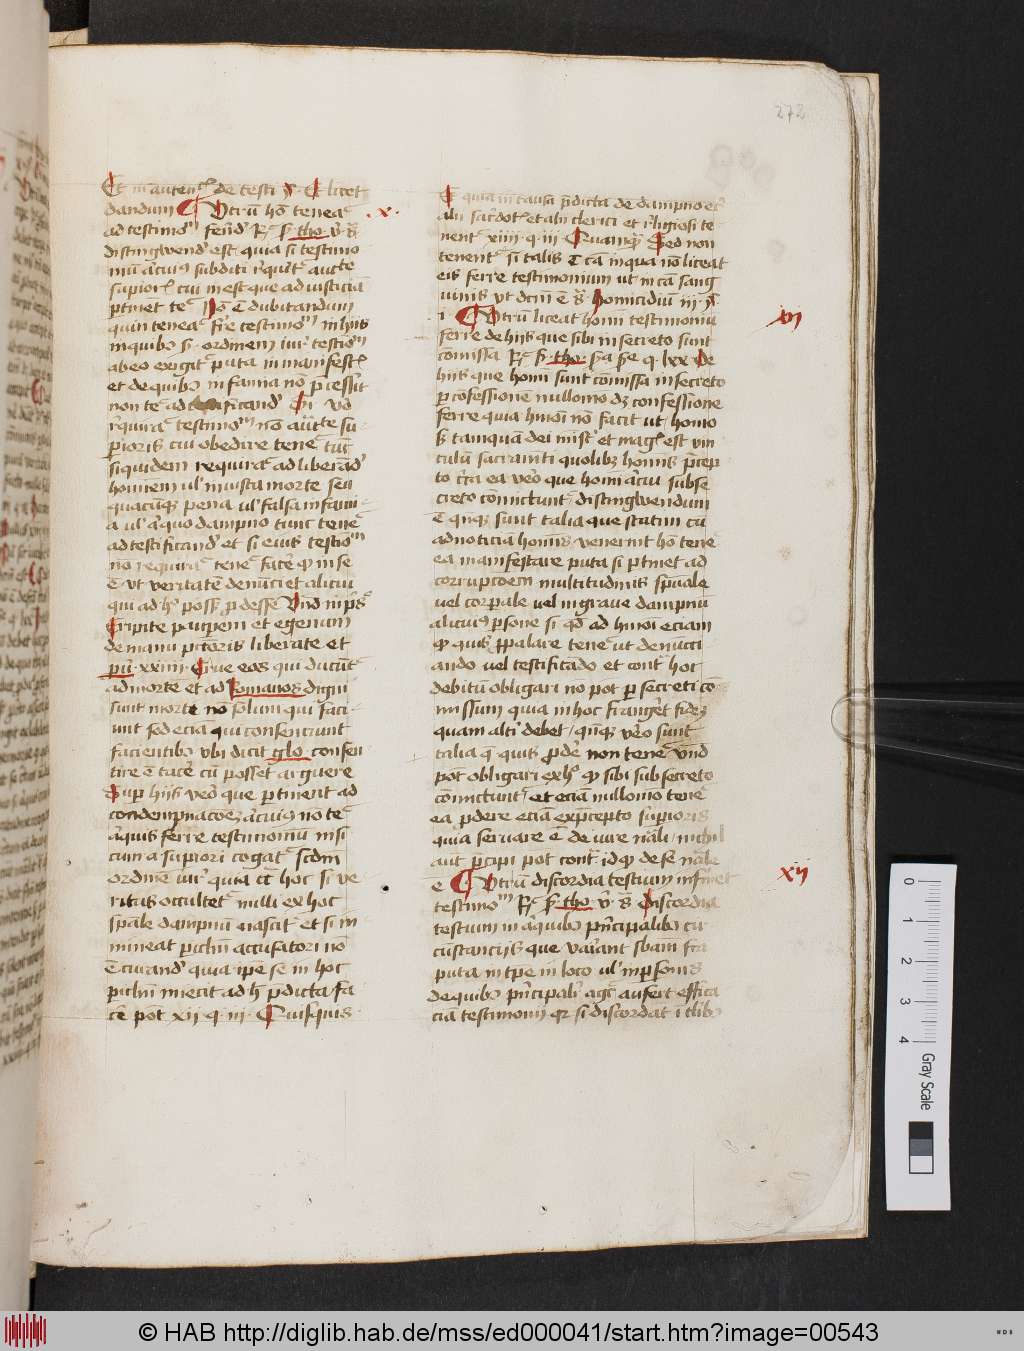 272
Et in auten^c de testi § Et licet
dandum ¶ Utrū hō teneat^r
.x.
ad testimo^m ferēd^m R^e s^s tho ubi s^a
distingwend^m est quia si testimo
niū alicui^9 subditi reqrit^r aucte
supior^s cui in est que ad iusticiā
ptinēt tet^r Nō ē dubitandum
quin teneat^r fr̄e testimo^m in hijs
inquibȝ s^m ordinem iur^s testio^m
ab eo exigit^r puta in manifest^s
et de quibȝ infamia nō pcessit
non tet^r ad testificand^m Si v^o
reqrat^r testimo^m nō auctte su
pioris cui obedire tenet^r tūc
siquidem requirat^r ad liberād^m
hominem ul^l iniusta morte seu
quacūqȝ pena ul^l falsa infami
a ul^l iniquo dampno tunc tenet^r
ad testificand^m et si eius testio^m
nō requirat^r tenet^r facē qȝ in se
ē ut veritatem denūciet alicui
qui ad h^c poss^t p desse Und in ps^o
Eripite pauperem et egenum
de manu pctoris liberate et
pū xxiiii Erue eos qui ducūt^r
ad morte et ad Romanos digni
sunt morte nō solum qui faci
unt sed eciā qui consenciunt
facientibȝ ubi dicit glo consen
tire ē tacē cū posset arguere
Sup hijs veō que pertinent ad
condempnacōez alicui^9 nō tet^r
aliquis ferre testimoniū nisi
cum a supiori cogat^r scdm
ordinē iur^s quia et hoc si ve
ritas occultet^r nulli ex hoc
spāle dampnū nascit^r et si in
mineat pichm accusatori nō
ē curand^m quia ipe se in hoc
pichm iniecit ad h^c pdicta fa
cē pot xii q iii Quisquis
Et quia in causa pdicta de dampno etc^r
alij sacdot^s et alij clerici et religiosi te
nent^r xiiii q iii Quamqȝ Sed non
tenent^r si talis ē cā in qua nō liceat
eis ferre testimonium ut in cā sang
uinis ut dcm ē s^a homicidiū iij §
i ¶ Utrū liceat homi testimoniū
xi
ferre de hijs que sibi in secreto sunt
cōmissa R^e s^s tho sca sce q lxx De
hijs que homi sunt cōmissa in secreto
p confessionē nullomo dȝ confessione
ferre quia hmōi nō facit ut homo
s^s tamquā dei minst^r et mag^s est vin
culū sacramti quolibȝ homīs pcep
to Circa ea veō que homi alicui sub se
creto cōmictunt^r distingwendum
ē qnqȝ sunt talia que statim cū
ad noticiā homīs venerint hō tenet^r
ea manifestare puta si ptinet ad
corrupcoem multitudīnis spūale
vel corpale vel in graue dampnū
alicui^9 psone si qd ad hmōi eciam
qȝ quis ppalare tenet^r ut denūcci
ando vel testificādo et cont^a hoc
debitū obligari nō pot p secreti cōm
missum quia in hoc frangēt fidez
quam alti debet qnqȝ veō sunt
talia q̄ quis pdē non tenet^r und
pōt obligari ex h^c qȝ sibi sub secreto
cōmictunt^r et eciā nullomo tenet^r
ea pdere eciā ex pcepto supioris
quia seruare ē de iure nāli nichil
aut pcipi pot cont^a id qȝ de se nāle
ē ¶ Utrū discordia testium infirmet
xii
testimo^m R^e s^s tho ubi s^a Discordia
testium in aliquibȝ pncipalibȝ cir
custancijs que variant sbam fci
puta in tpe in loco ul^l in psonis
de quibȝ pncipalit^r agit^r aufert effica
ciā testimonij qr si discordāt i tlibȝ
0 1 2 3 4
Gray Scale
© HAB http://diglib.hab.de/mss/ed000041/start.htm?image=00543